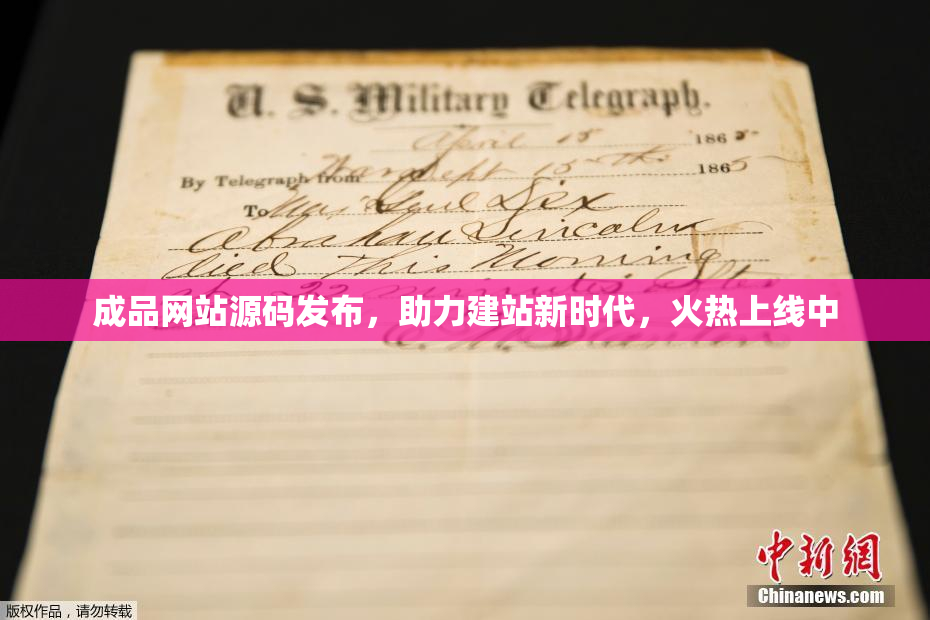 U. S. Military Telegraph.
April 15 1865
By Telegraph from War Dept 15th 1865
To Maj Genl Dix
Abraham Lincoln
died This Morning
22 minutes after
成品网站源码发布，助力建站新时代，火热上线中
E. M. Stanton
中新网
Chinanews.com
版权作品，请勿转载